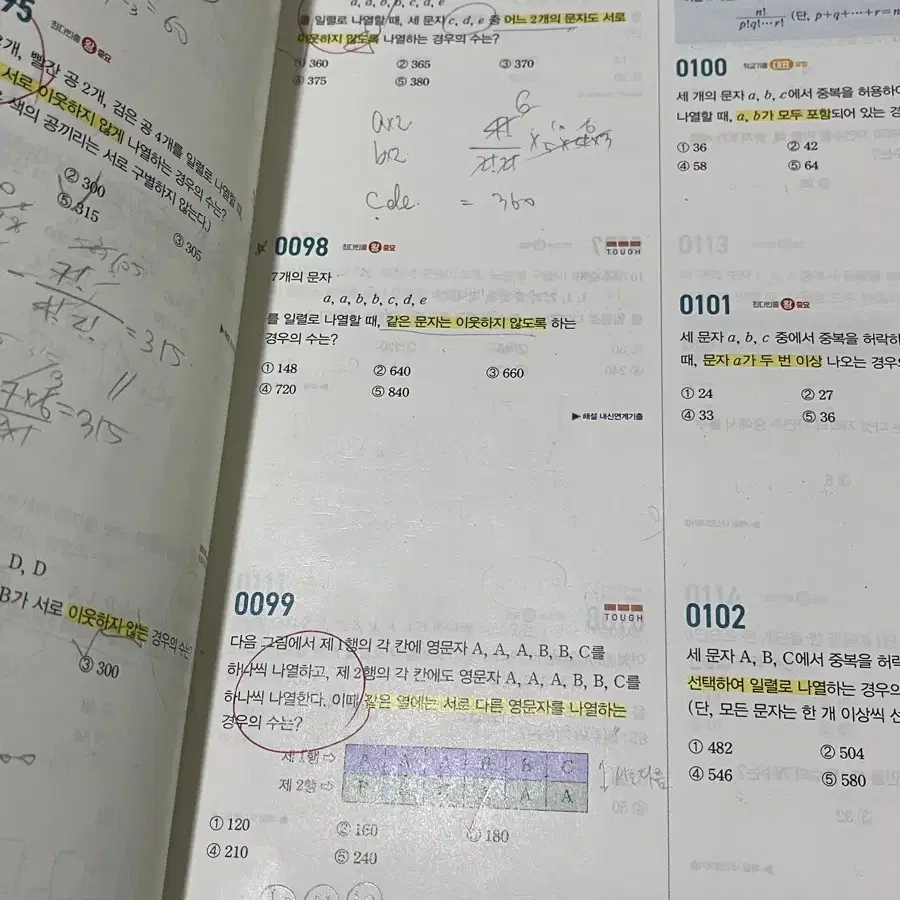 95
최다빈출 왕 중요
빨간 공 2개, 검은 공 4개를 일렬로 나열할 때,
서로 이웃하지 않게 나열하는 경우의 수는?
색의 공끼리는 서로 구별하지 않는다.)
② 300
③ 305
⑤ 315
= 315
= 315
D, D
B가 서로 이웃하지 않는 경우의 수는?
③ 300
a, a, b, b, c, d, e
를 일렬로 나열할 때, 세 문자 c, d, e 중 어느 2개의 문자도 서로
이웃하지 않도록 나열하는 경우의 수는?
① 360 ② 365 ③ 370
④ 375 ⑤ 380
a×2
b×2
c de
= 360
0098 최다빈출 왕 중요
TOUGH
7개의 문자
a, a, b, b, c, d, e
를 일렬로 나열할 때, 같은 문자는 이웃하지 않도록 하는
경우의 수는?
① 148 ② 640 ③ 660
④ 720 ⑤ 840
▶ 해설 내신연계기출
0099
TOUGH
다음 그림에서 제 1행의 각 칸에 영문자 A, A, A, B, B, C를
하나씩 나열하고, 제 2행의 각 칸에도 영문자 A, A, A, B, B, C를
하나씩 나열한다. 이때 같은 열에는 서로 다른 영문자를 나열하는
경우의 수는?
제 1행 ⇨ A A A B B C
제 2행 ⇨ A A
서로다름
① 120 ② 160 ③ 180
④ 210 ⑤ 240
n!
p!q!…r! (단, p+q+…+r=n
0100 학교기출 대표 유형
세 개의 문자 a, b, c에서 중복을 허용하여
나열할 때, a, b가 모두 포함되어 있는 경
① 36 ② 42
④ 58 ⑤ 64
0101 최다빈출 왕 중요
세 문자 a, b, c 중에서 중복을 허락하
때, 문자 a가 두 번 이상 나오는 경우의
① 24 ② 27
④ 33 ⑤ 36
0102
세 문자 A, B, C에서 중복을 허락
선택하여 일렬로 나열하는 경우의
(단, 모든 문자는 한 개 이상씩 선
① 482 ② 504
④ 546 ⑤ 580